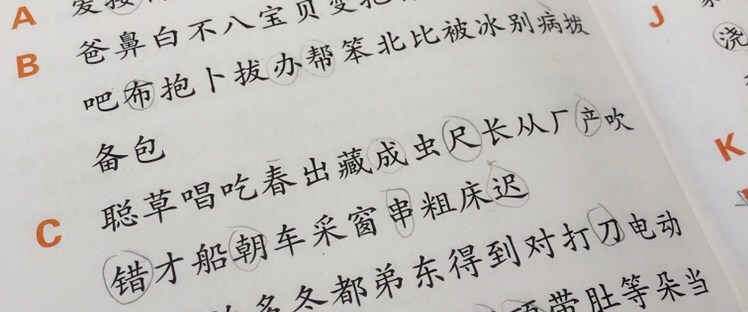 A 爱按
B 爸鼻白不八宝贝变
吧布抱卜拔办帮笨北比被冰别病拨
备包
C 聪草唱吃春出藏成虫尺长从厂产吹
错才船朝车采窗串粗床迟
多冬都弟东得到对打刀电动
带肚等朵当
J
浇
K